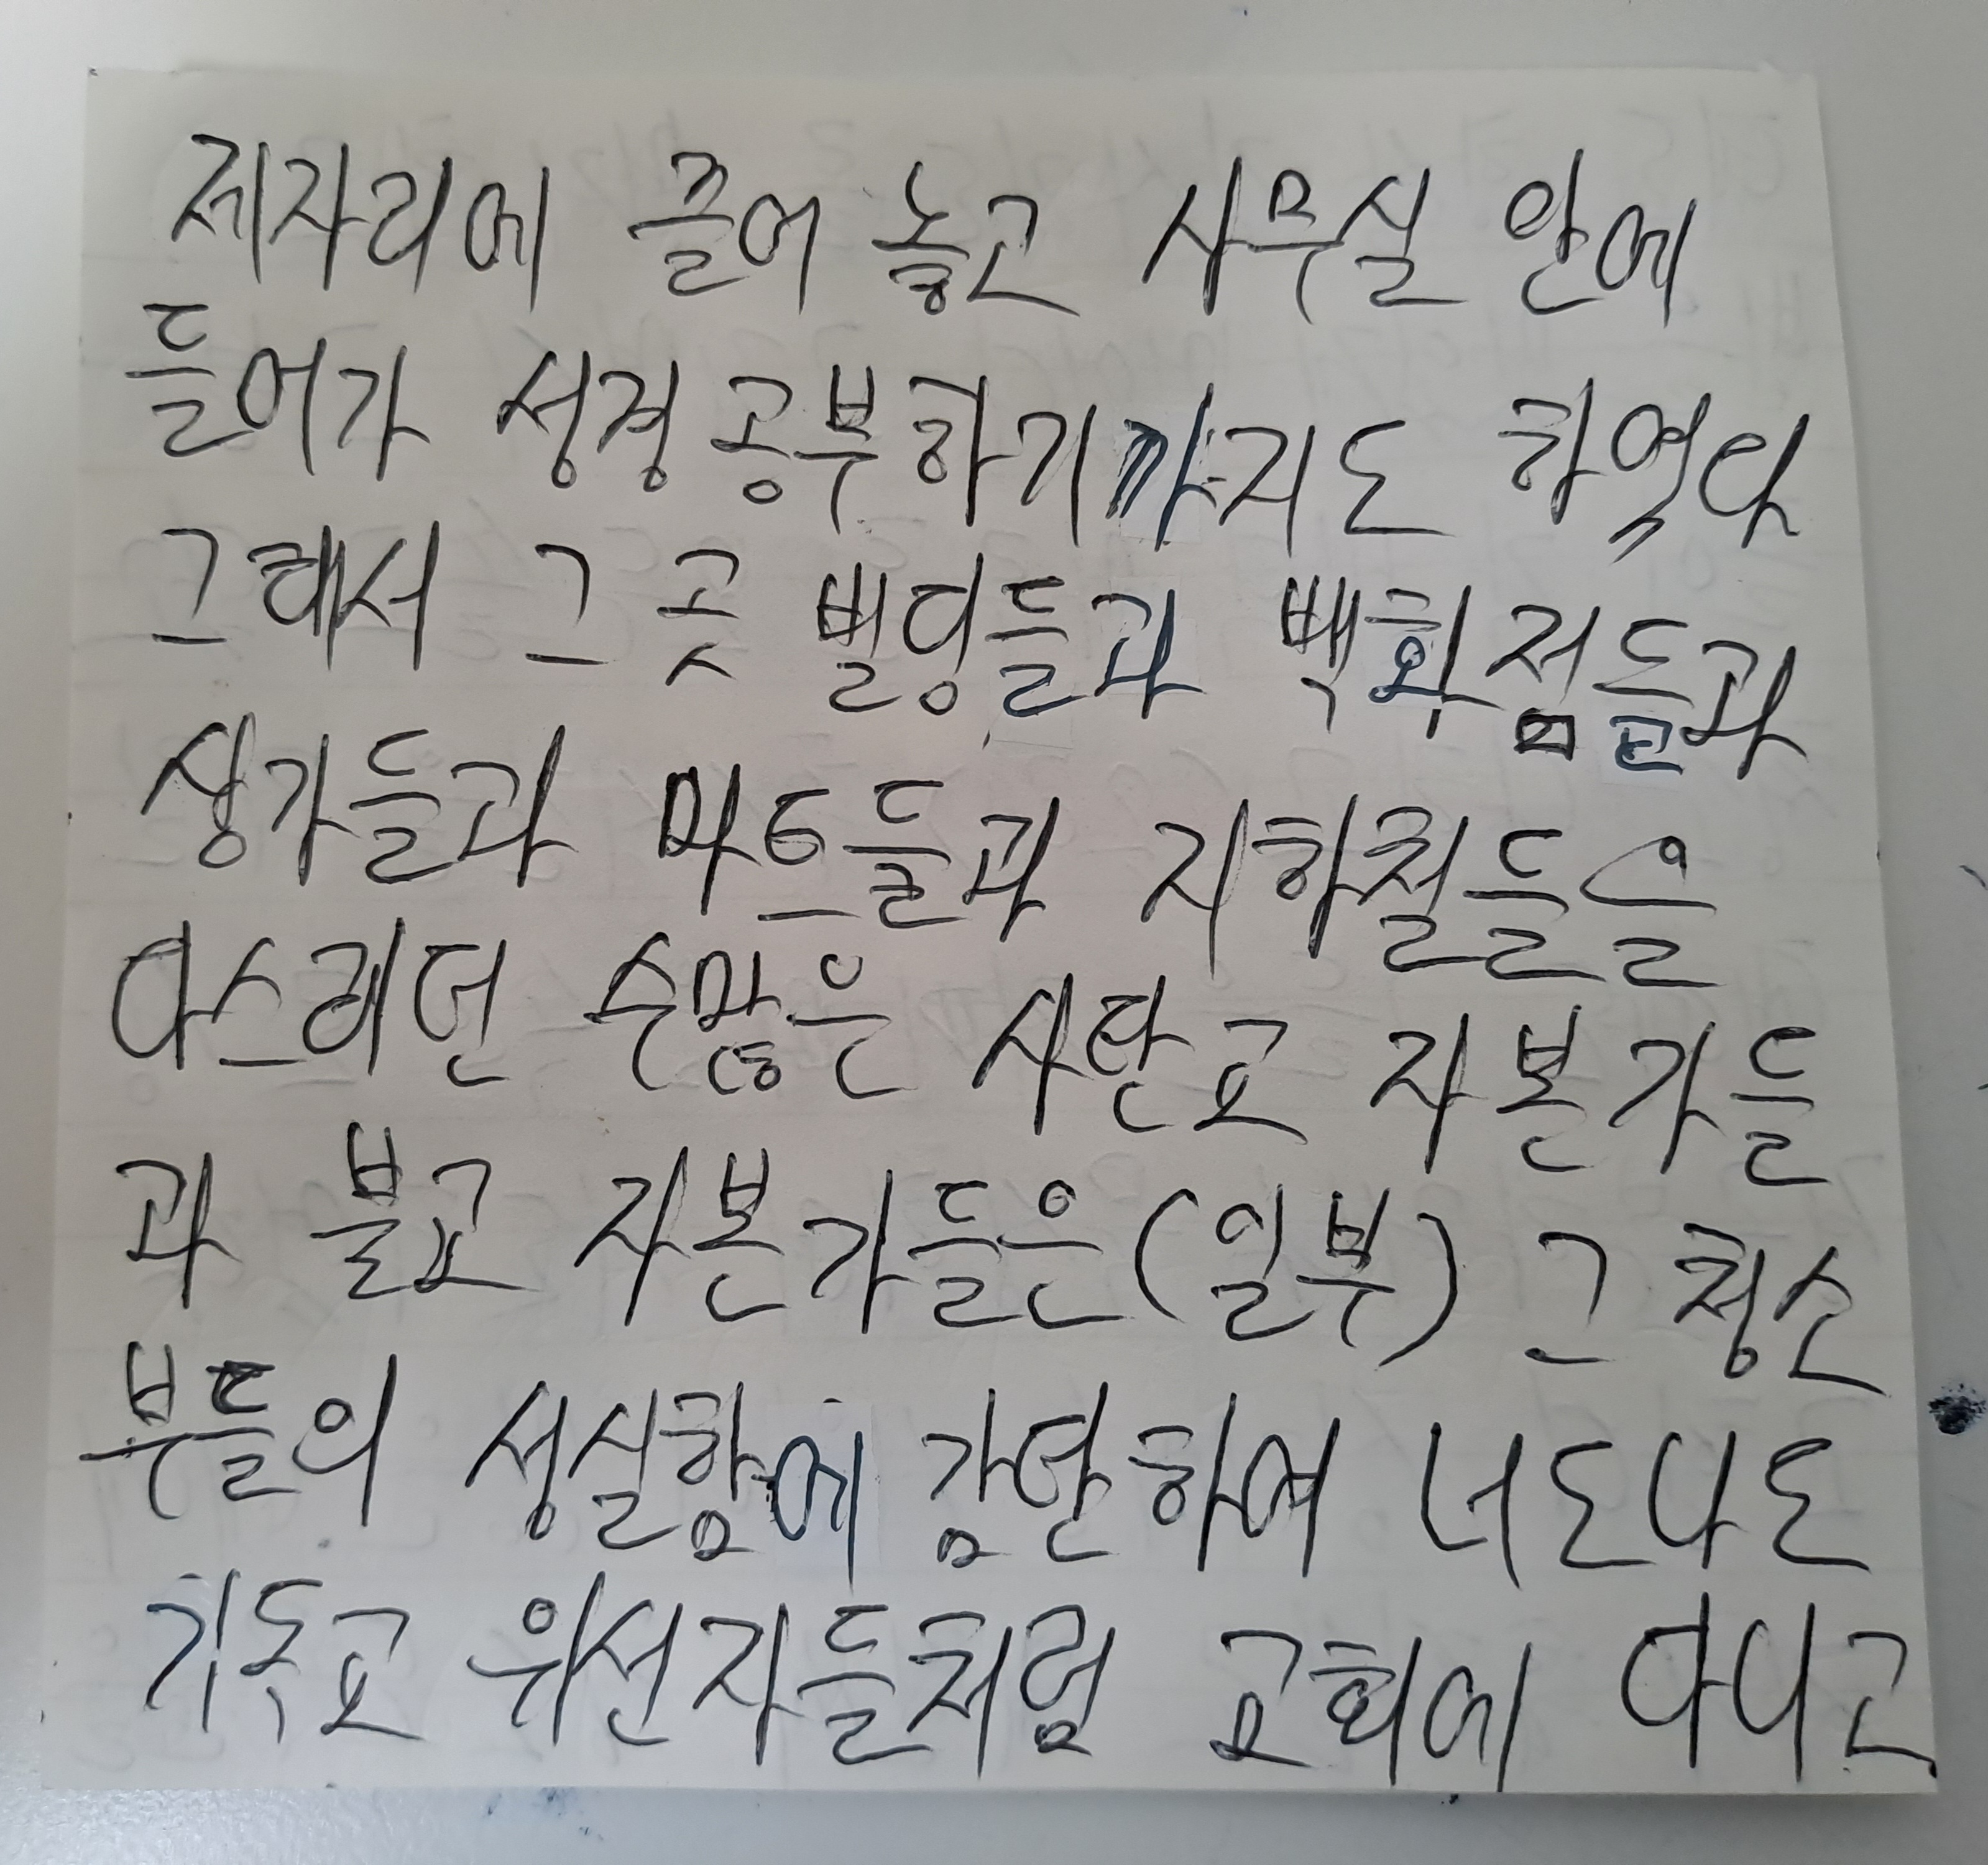 제자리에 들어 놓고 사무실 안에
들어가 성경공부하기까지도 하였다
그래서 그 곳 빌딩들과 백화점들과
상가들과 마트들과 지하철들을
다스리던 수많은 사탄교 자본가들
과 불교 자본가들은(일부) 그 청소
부들의 성실함에 감탄하여 너도나도
기독교 위선자들처럼 교회에 다니고